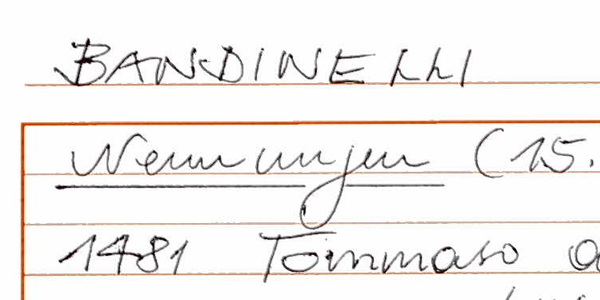 BANDINELLI
Nennungen (15.
1481 Tommaso